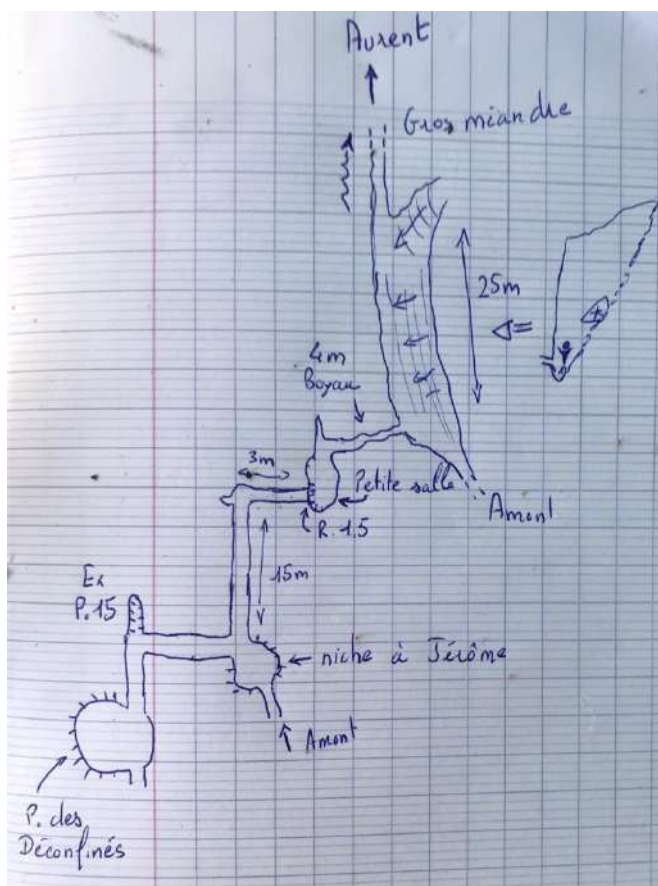 Aurent
Gros miandre
25m
4m
Boyau
3m
Petite salle
R. 1,5
Amont
15m
Ex
P. 15
niche à Jérôme
Amont
P. des
Déconfinés